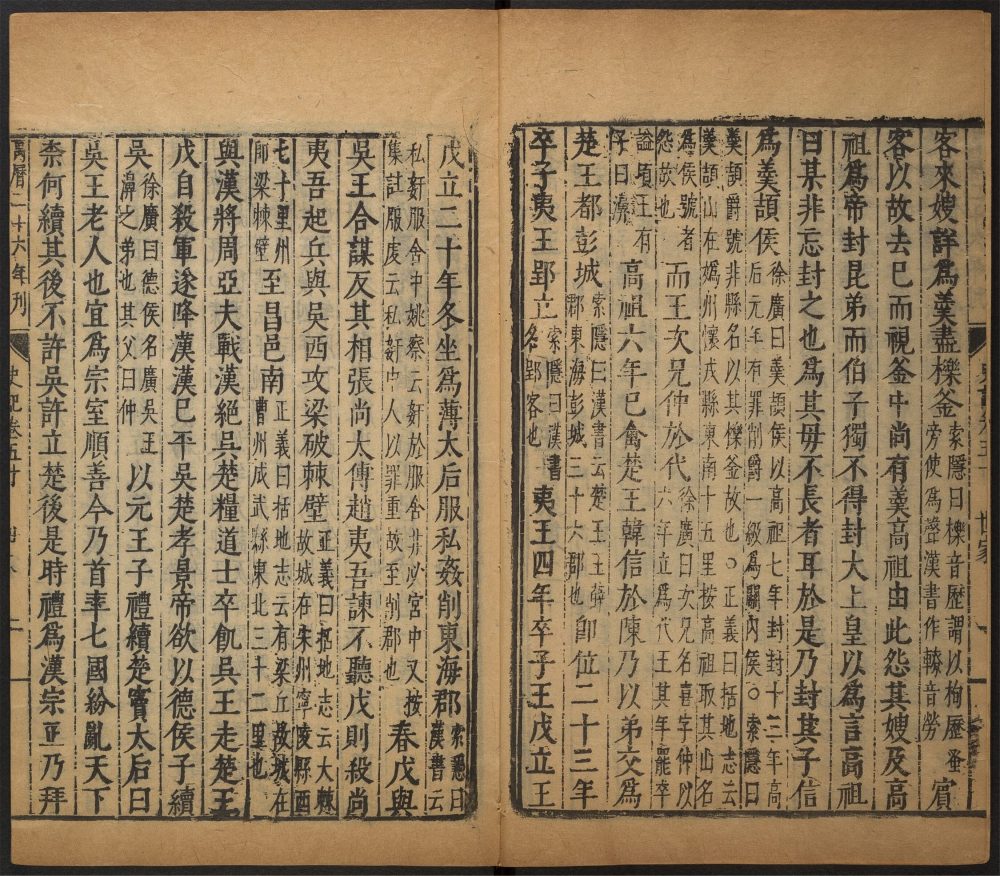 客來嫂詳爲羹盡櫟釜索隱曰櫟音歷謂以杓歷釜旁使爲聲漢書作轑音勞賓
客以故去已而視釜中尚有羹高祖由此怨其嫂及高
祖爲帝封昆弟而伯子獨不得封大上皇以爲言高祖
曰某非忘封之也爲其母不長者耳於是乃封其子信
爲羹頡侯徐廣曰羹頡侯以高祖七年封封十三年高后元年有罪削爵一級爲關內侯○索隱曰
羹頡爵號非縣名以其櫟釜故也○正義曰括地志云羹頡山在嬀州懷戎縣東南十五里按高祖取其山名
爲侯號者怨故也而王次兄仲於代徐廣曰次兄名喜字仲以六年立爲代王其年罷卒
謚頃王有子曰濞高祖六年已禽楚王韓信於陳乃以弟交爲
楚王都彭城索隱曰漢書云楚王王薛郡東海彭城三十六郡也卽位二十三年
卒子夷王郢立索隱曰漢書名郢客也夷王四年卒子王戊立王
戊立二十年冬坐爲薄太后服私姦削東海郡索隱曰漢書云
私姧服舍中姚察云姧於服舍非必宮中又按集註服虔云私姧中人以罪重故至削郡也春戊與
吳王合謀反其相張尚太傅趙夷吾諫不聽戊則殺尚
夷吾起兵與吳西攻梁破棘壁正義曰括地志云大棘故城在宋州寧陵縣西
七十里州卽梁棘壁至昌邑南正義曰括地志云有梁丘故城在曹州成武縣東北三十二里也
與漢將周亞夫戰漢絕吳楚糧道士卒飢吳王走楚王
戊自殺軍遂降漢漢已平吳楚孝景帝欲以德侯子續
吳徐廣曰德侯名廣吳王濞之弟也其父曰仲以元王子禮續楚竇太后曰
吳王老人也宜爲宗室順善今乃首率七國紛亂天下
柰何續其後不許吳許立楚後是時禮爲漢宗正乃拜
萬曆二十六年刊
史記卷五十